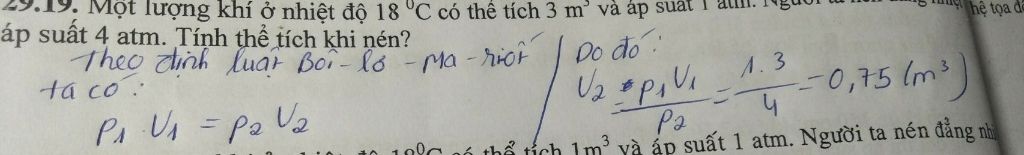 29.19. Một lượng khí ở nhiệt độ 18 °C có thể tích 3 m³ và áp suất 1 atm. Người ta nén
hệ tọa đ
áp suất 4 atm. Tính thể tích khi nén?
Theo định luật Bôi-lơ-Ma-riốt
ta có:
P₁ V₁ = P₂ V₂
Do đó:
V₂ = P₁V₁/P₂ = 1.3/4 = 0,75 (m³)
có thể tích 1m³ và áp suất 1 atm. Người ta nén đẳng nh